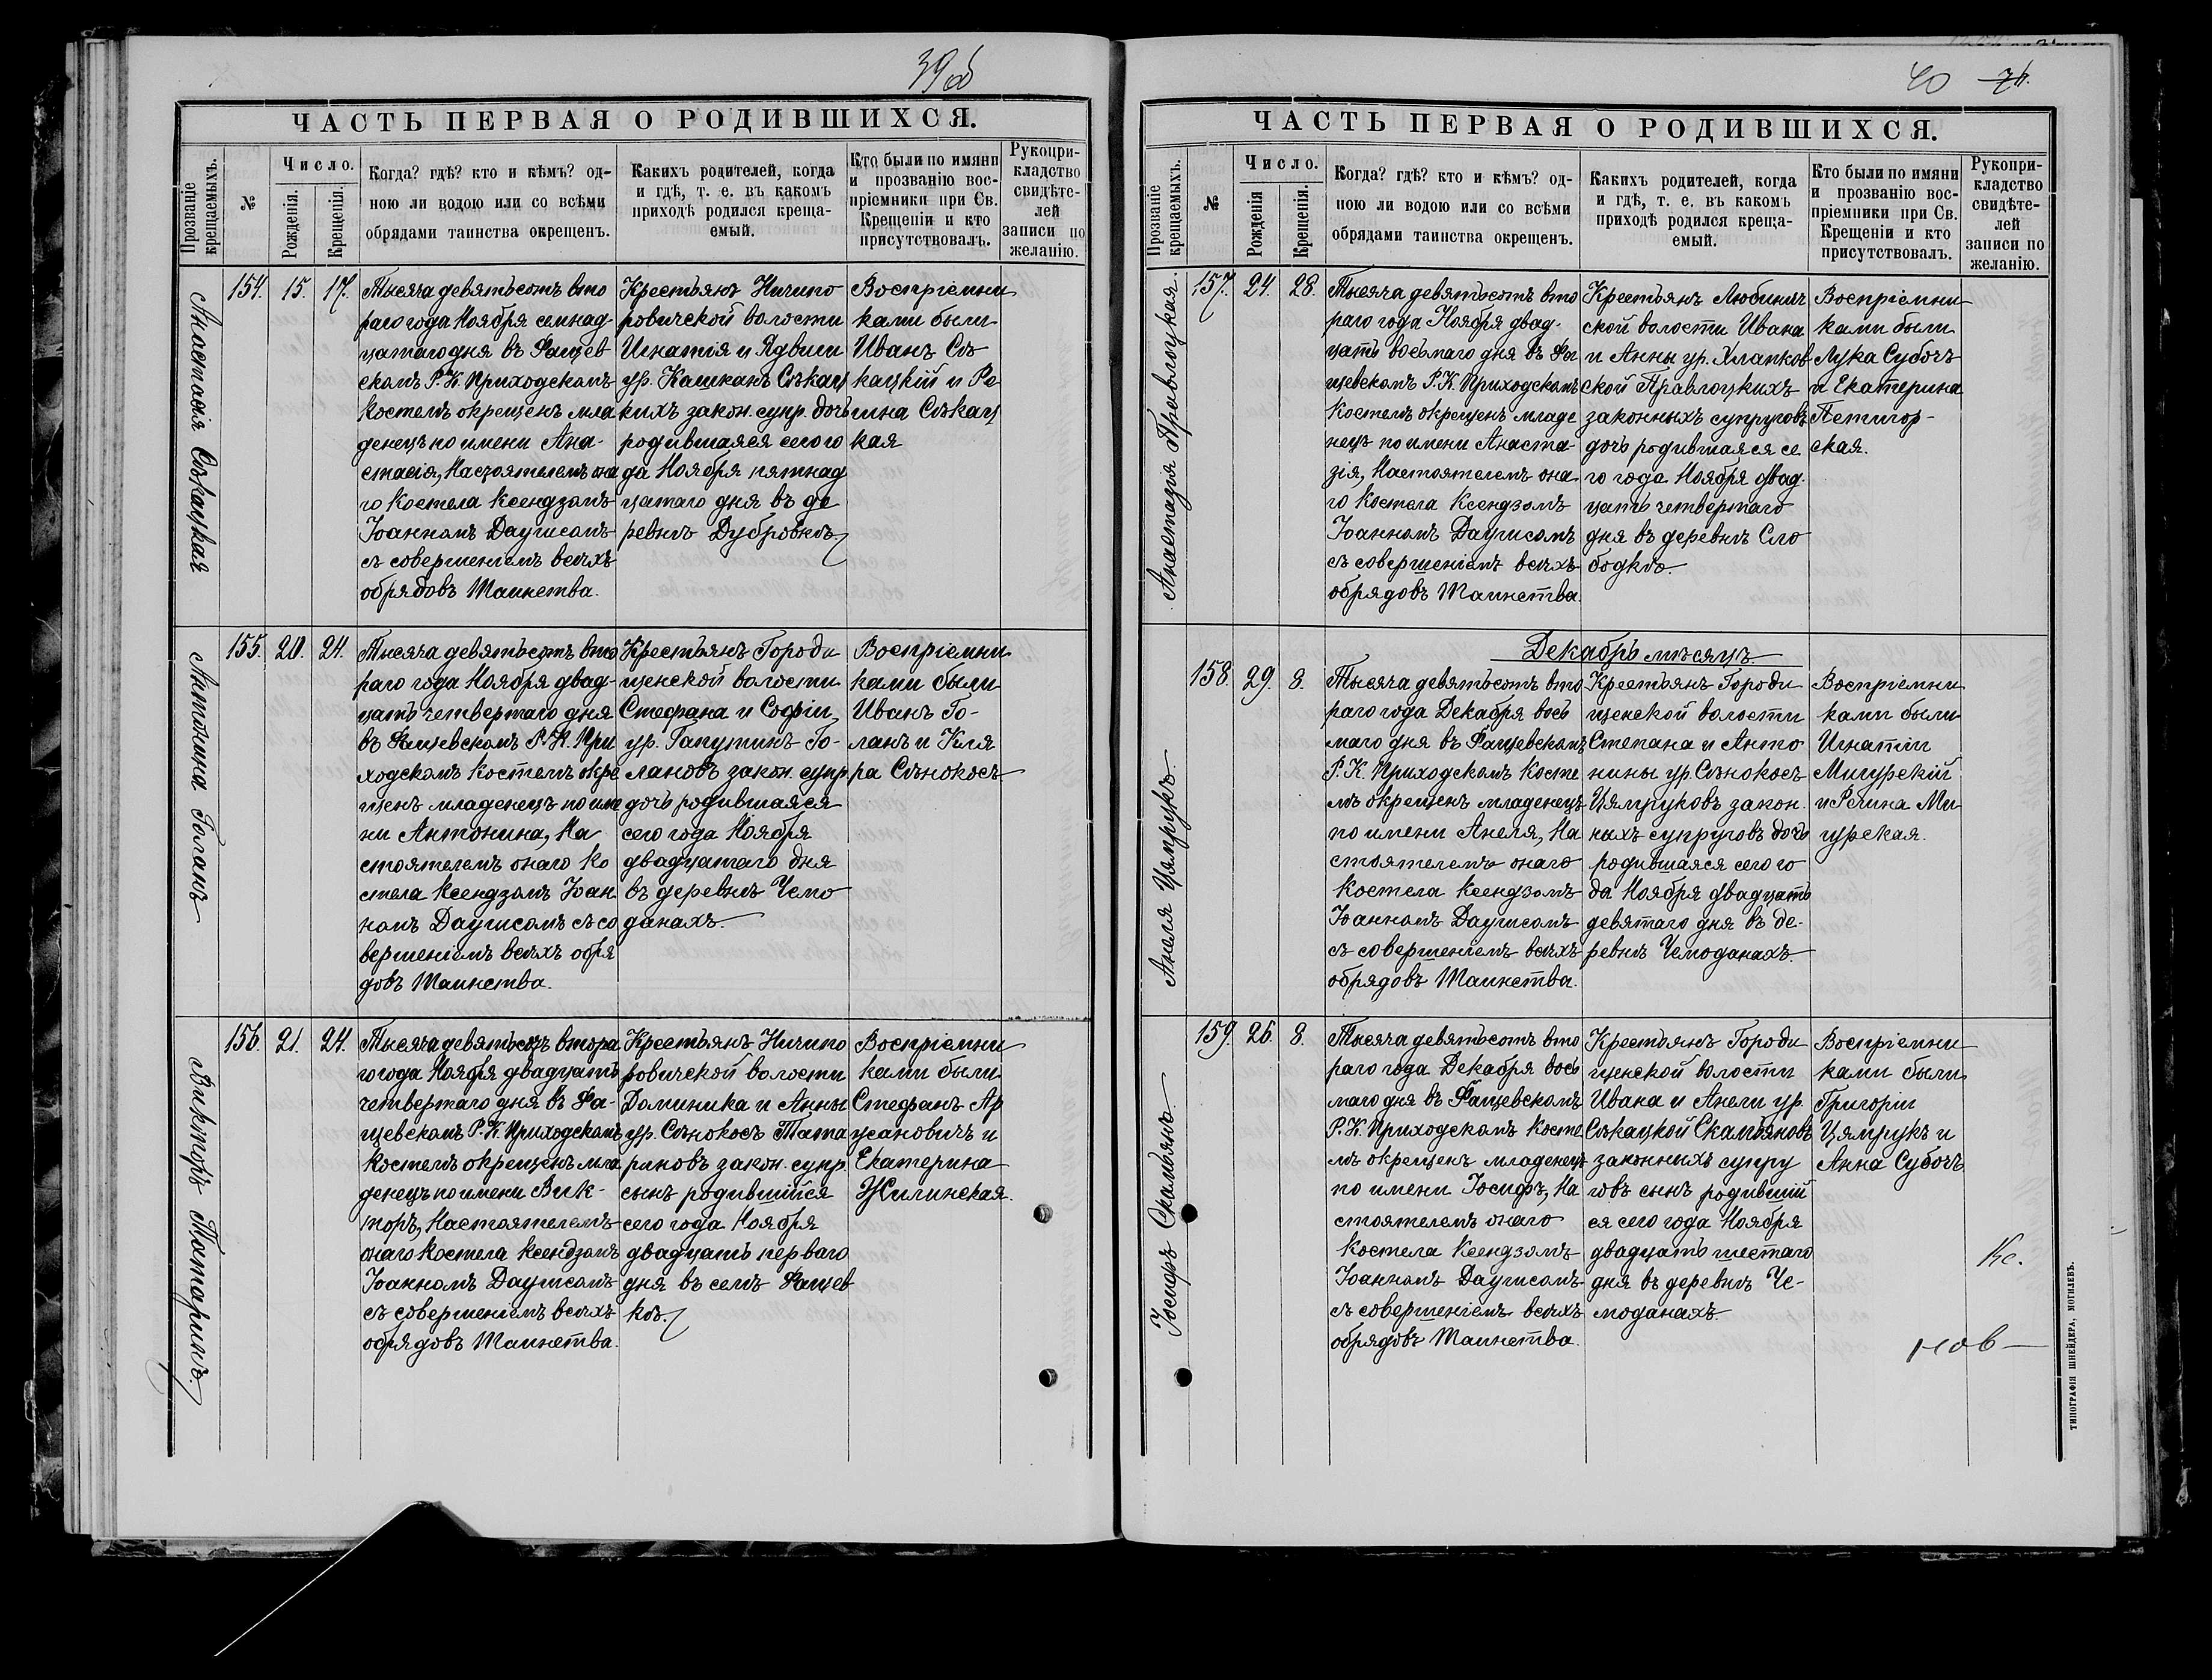 39об
ЧАСТЬ ПЕРВАЯ О РОДИВШИХСЯ.
Прозваніе крещаемыхъ.
№
Число.
Рожденія.
Крещенія.
Когда? гдѣ? кто и кѣмъ? од-
ною ли водою или со всѣми
обрядами таинства окрещенъ.
Какихъ родителей, когда
и гдѣ, т. е. въ какомъ
приходѣ родился креща-
емый.
Кто были по имяни
и прозванію вос-
пріемники при Св.
Крещеніи и кто
присутствовалъ.
Рукопри-
кладство
свидѣте-
лей
записи по
желанію.
Анастасія Сѣкацкая
154. 15. 17.
Тысяча девятьсотъ вто
раго года Ноября семнад-
цатаго дня въ Фащев
скомъ Р. К. Приходскомъ
костелѣ окрещенъ мла
денецъ по имени Ана-
стасія, Настоятелемъ она
го костела Ксендзомъ
Іоанномъ Даугисомъ
съ совершеніемъ всѣхъ
обрядовъ Таинства.
Крестьянъ Ничипо
ровичской волости
Игнатія и Ядвиги
ур. Кашканъ Сѣкац
кихъ закон. супр. дочь
родившаяся сего го
да Ноября пятнад
цатаго дня въ де
ревнѣ Дубровкѣ
Воспріемни
ками были
Иванъ Сѣ
кацкій и Ре
гина Сѣкац
кая
Антонина Голанъ
155. 20. 24.
Тысяча девятьсотъ вто
раго года Ноября двад-
цать четвертаго дня
въ Фащевскомъ Р. К. При
ходскомъ костелѣ окре
щенъ младенецъ по име
ни Антонина, На
стоятелемъ онаго ко
стела Ксендзомъ Іоан
номъ Даугисомъ съ со
вершеніемъ всѣхъ обря
довъ Таинства.
Крестьянъ Городи
щенской волости
Стефана и Софіи,
ур. Гапутинъ Го-
лановъ закон. супр.
дочь родившаяся
сего года Ноября
двадцатаго дня
въ деревнѣ Чемо
данахъ.
Воспріемни
ками были
Иванъ Го-
ланъ и Кля
ра Сѣнокосъ
Викторъ Татаринъ.
156. 21. 24.
Тысяча девятьсотъ втора
го года Ноября двадцать
четвертаго дня въ Фа-
щевскомъ Р. К. Приходскомъ
костелѣ окрещенъ мла
денецъ по имени Вик-
торъ, Настоятелемъ
онаго костела Ксендзомъ
Іоанномъ Даугисомъ
съ совершеніемъ всѣхъ
обрядовъ Таинства.
Крестьянъ Ничипо
ровичской волости
Доминика и Анны
ур. Сѣнокосъ Тата
риновъ закон. супр.
сынъ родившійся
сего года Ноября
двадцать перваго
дня въ селѣ Фащев
кѣ.
Воспріемни
ками были
Стефанъ Ар
цсановичъ и
Екатерина
Жилинская.
40
ЧАСТЬ ПЕРВАЯ О РОДИВШИХСЯ.
Прозваніе крещаемыхъ.
№
Число.
Рожденія
Крещенія.
Когда? гдѣ? кто и кѣмъ? од-
ною ли водою или со всѣми
обрядами таинства окрещенъ.
Какихъ родителей, когда
и гдѣ, т. е. въ какомъ
приходѣ родился креща-
емый.
Кто были по имяни
и прозванію вос-
пріемники при Св.
Крещеніи и кто
присутствовалъ.
Рукопри-
кладство
свидѣте-
лей
записи по
желанію.
Анастазія Правлоцкая.
157. 24. 28.
Тысяча девятьсотъ вто
раго года Ноября двад-
цать восьмаго дня въ Фа
щевскомъ Р. К. Приходскомъ
костелѣ окрещенъ младе
нецъ по имени Анаста-
зія, Настоятелемъ она
го костела Ксендзомъ
Іоанномъ Даугисомъ
съ совершеніемъ всѣхъ
обрядовъ Таинства.
Крестьянъ Любинич
ской волости Ивана
и Анны ур. Хлапков
ской Правлоцкихъ
законныхъ супруговъ
дочь родившаяся се
го года Ноября двад-
цать четвертаго
дня въ деревнѣ Сло
бодкѣ.
Воспріемни
ками были
Лука Субочъ
и Екатерина
Петигор-
ская.
Декабрь мѣсяцъ.
Анеля Цямрукъ
158. 29. 8.
Тысяча девятьсотъ вто
раго года Декабря вось
маго дня въ Фащевскомъ
Р. К. Приходскомъ Косте
лѣ окрещенъ младенецъ
по имени Анеля, На
стоятелемъ онаго
костела Ксендзомъ
Іоанномъ Даугисомъ
съ совершеніемъ всѣхъ
обрядовъ Таинства.
Крестьянъ Городи
щенской волости
Степана и Анто
нины ур. Сѣнокосъ
Цямруковъ закон.
ныхъ супруговъ дочь
родившаяся сего го
да Ноября двадцать
девятаго дня въ де-
ревнѣ Чемоданахъ.
Воспріемни
ками были
Игнатій
Мигурскій
и Регина Ми
гурская.
Іосифъ Скамьянъ
159. 26. 8.
Тысяча девятьсотъ вто
раго года Декабря вось
маго дня въ Фащевскомъ
Р. К. Приходскомъ Косте
лѣ окрещенъ младенецъ
по имени Іосифъ, На
стоятелемъ онаго
костела Ксендзомъ
Іоанномъ Даугисомъ
съ совершеніемъ всѣхъ
обрядовъ Таинства.
Крестьянъ Городи
щенской волости
Ивана и Анели ур.
Сѣкацкой Скамьяновъ
законныхъ супру
говъ сынъ родившій
ся сего года Ноября
двадцать шестаго
дня въ деревнѣ Че-
моданахъ.
Воспріемни
ками были
Григорій
Цямрукъ и
Анна Субочъ
Кс.
ТИПОГРАФІЯ ШНЕЙДЕРА, МОГИЛЕВЪ.